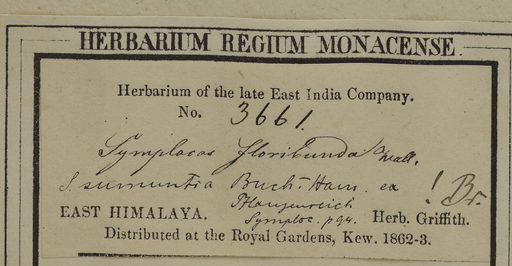 HERBARIUM REGIUM MONACENSE
Herbarium of the late East India Company.
No. 3661.
Symplocos floribunda Wall.
S. sumuntia Buch-Ham. ex ! Br.
EAST HIMALAYA. Symploc. p 94. Herb. Griffith.
Distributed at the Royal Gardens, Kew. 1862-3.